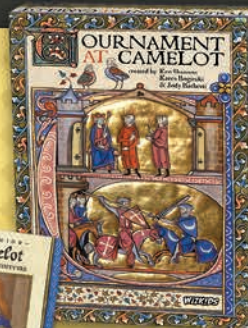 TOURNAMENT
AT CAMELOT
created by Ken Shannon
Karen Boginski
& Jody Barbessi
WIZKIDS
elot